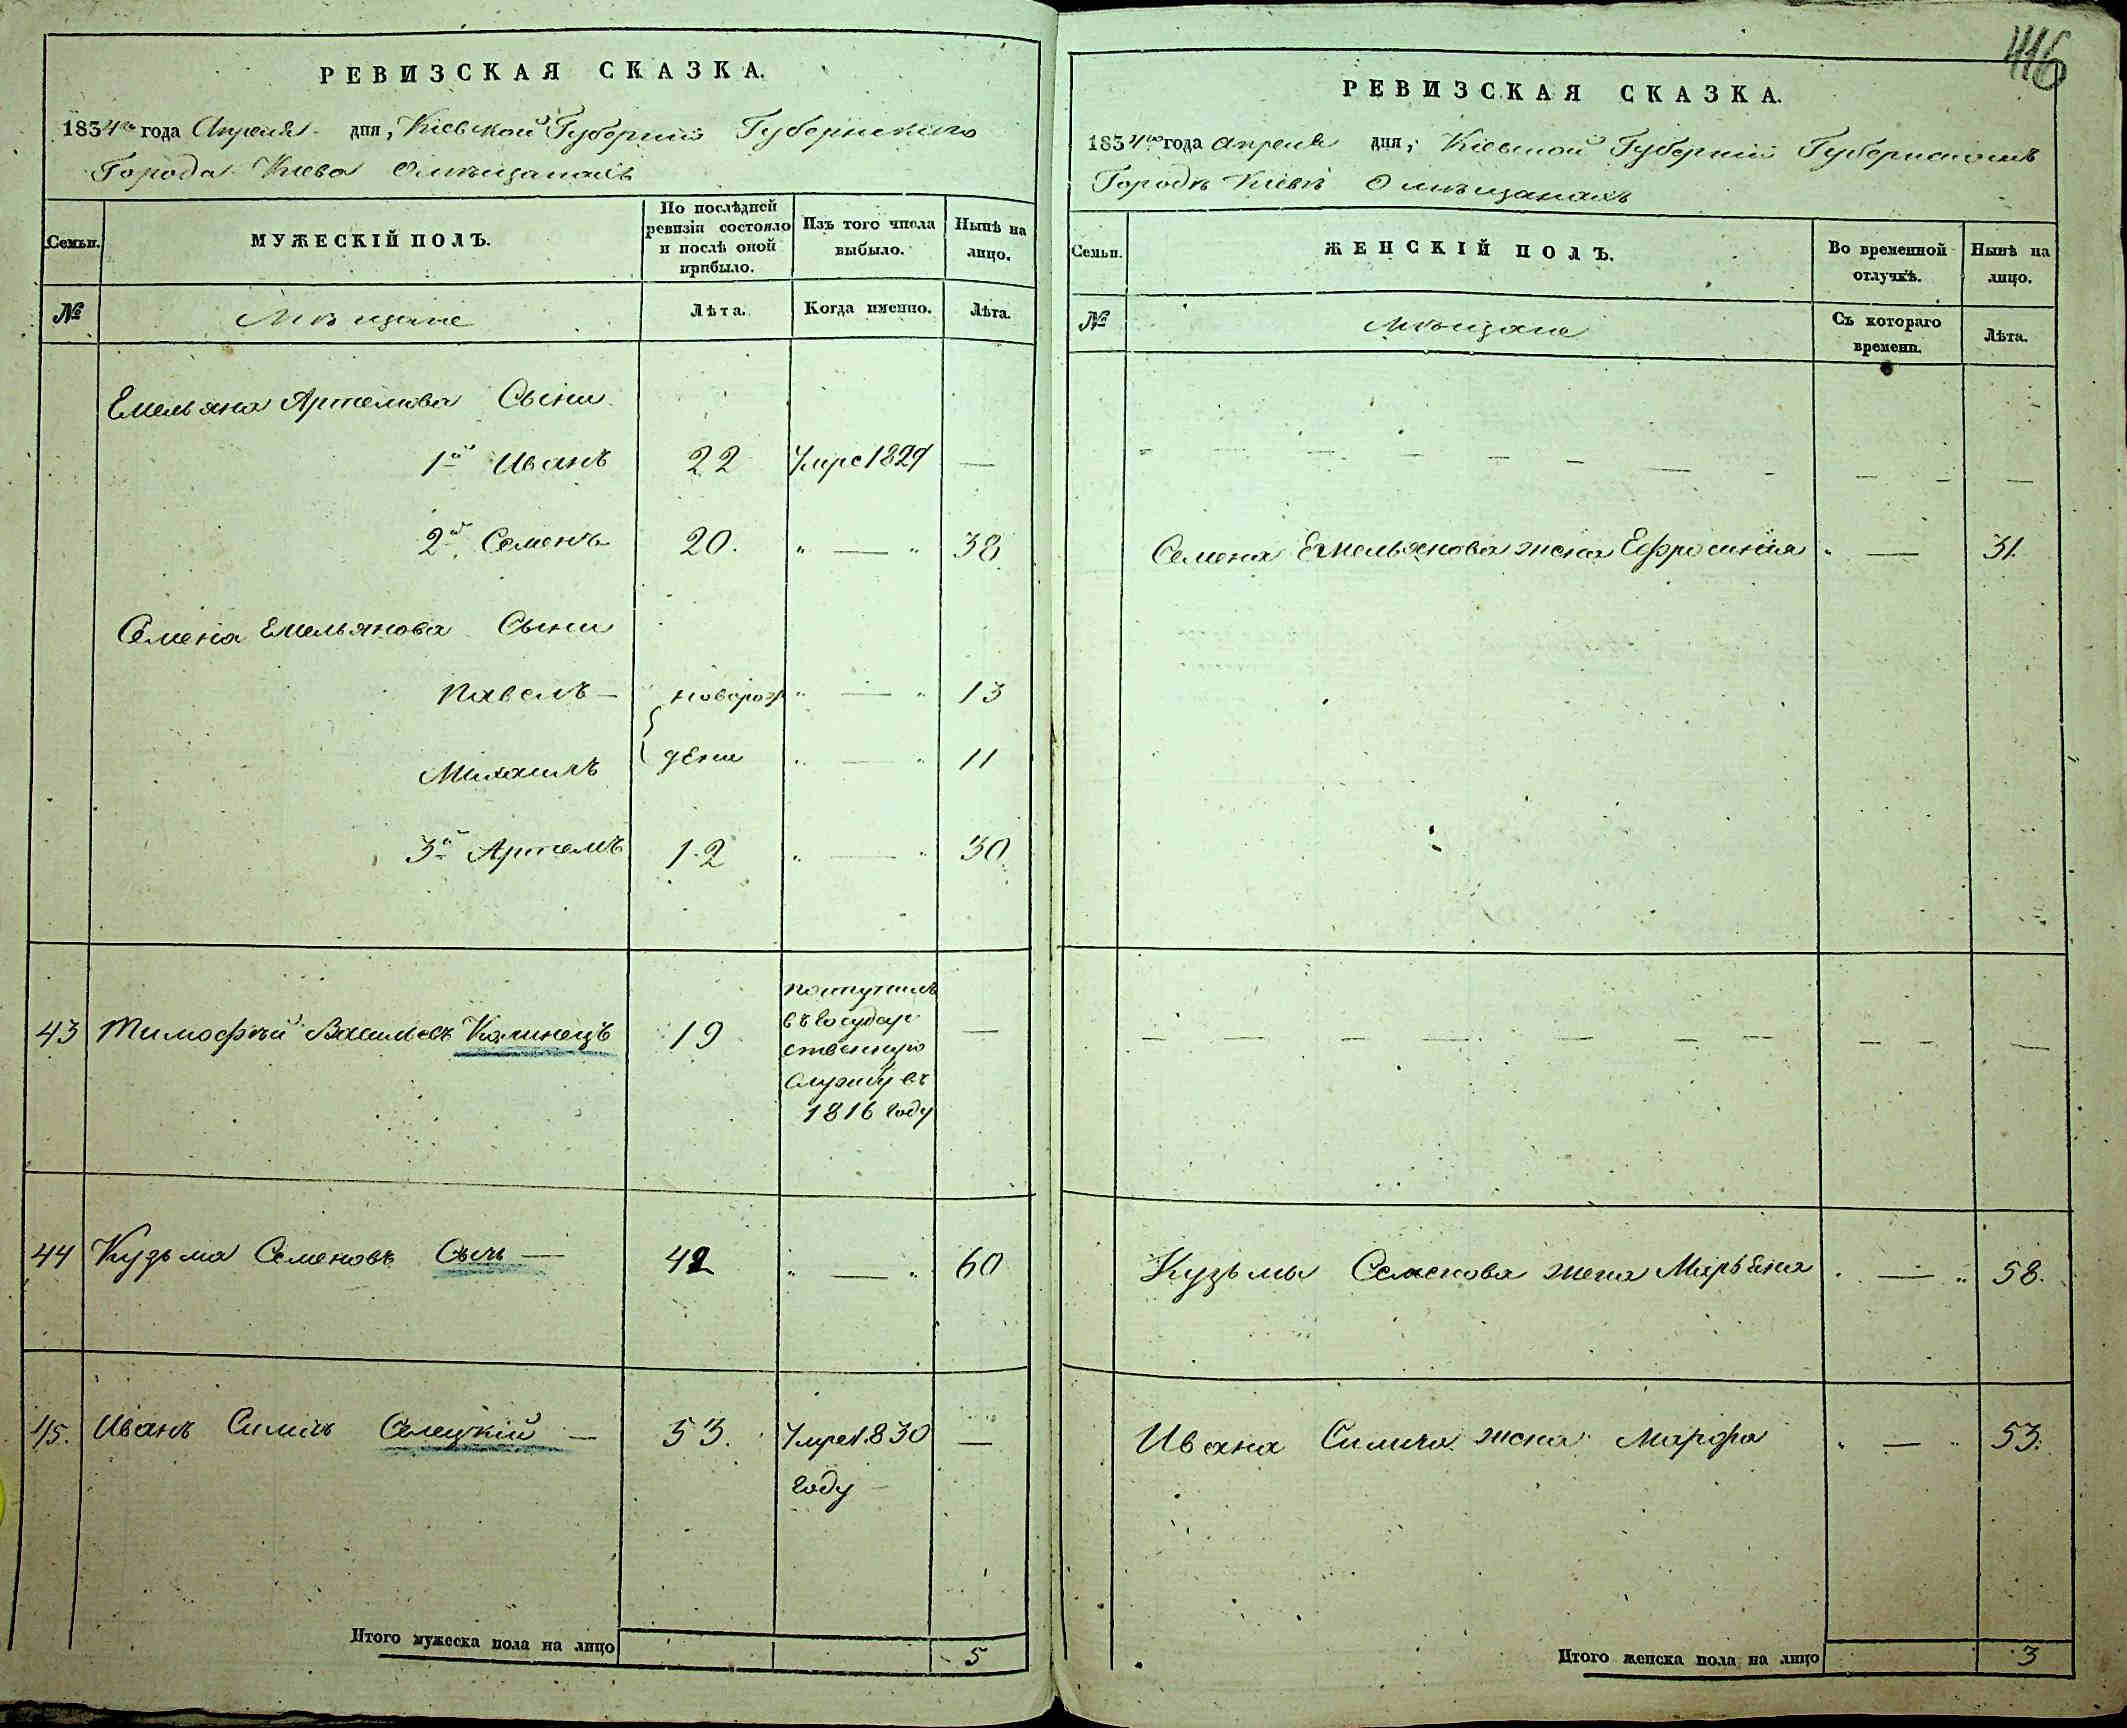 416
РЕВИЗСКАЯ СКАЗКА.
1834го года Апреля дня, Кіевской Губерніи Губернскаго
Города Кіева О мѣщанахъ
Семьи.
МУЖЕСКІЙ ПОЛЪ.
По послѣдней ревизіи состояло и послѣ оной прибыло.
Изъ того числа выбыло.
Нынѣ на лицо.
№
Мѣщане
Лѣта.
Когда именно.
Лѣта.
Емельяна Артемова Сыни
1й Иванъ 22 Умре 1829 —
2й Семенъ 20. " — " 38
Семена Емельянова Сыни
Павелъ — новорож " — " 13
Михаилъ дени " — " 11
3й Артемъ 12 " — " 30
43 Тимофѣй Васильевъ Калинецъ 19 —
поступилъ
въ Государ
ственную
службу въ
1816 году
44 Кузьма Семеновъ Сычь — 42 " — " 60
45. Иванъ Силичъ Селецкій — 53. Умре 1830 —
году
Итого мужеска пола на лицо 5
РЕВИЗСКАЯ СКАЗКА.
1834го года апреля дня, Кіевской Губерніи Губернскомъ
Городѣ Кіевѣ О мѣщанахъ
Семьи.
ЖЕНСКІЙ ПОЛЪ.
Во временной отлучкѣ.
Нынѣ на лицо.
№
Мѣщане
Съ котораго времени.
Лѣта.
Семена Емельянова жена Ефросинія " — 31.
Кузьмы Семенова жена Марьяна " — " 58.
Ивана Силича жена Марфа " — " 53.
Итого женска пола на лицо 3